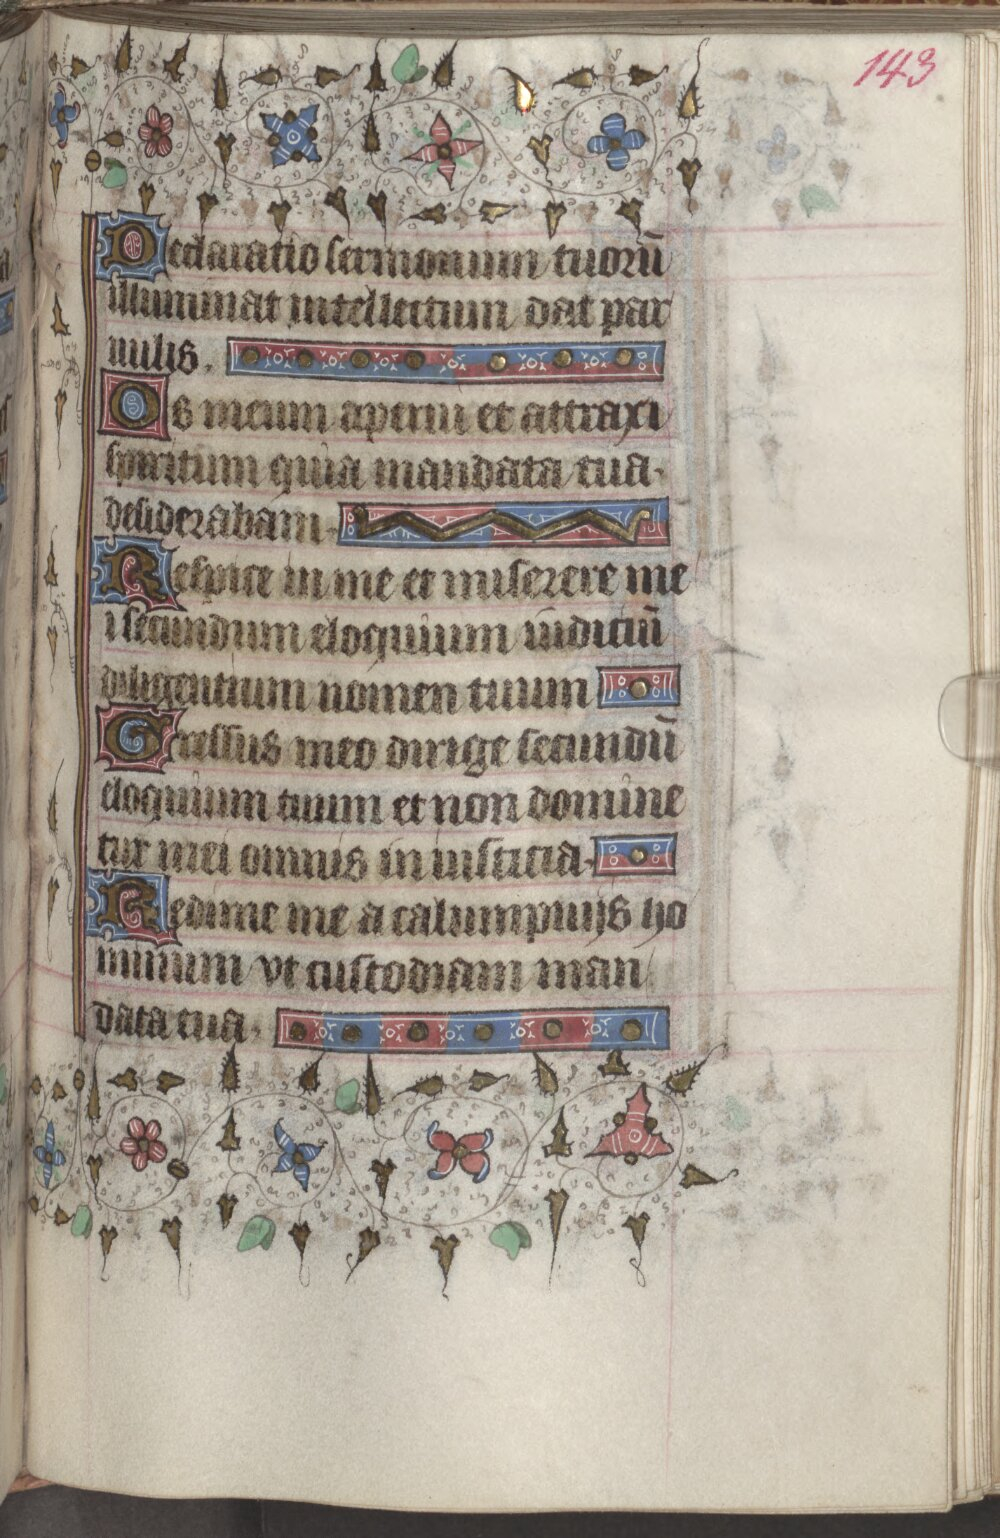 143
Declaratio sermonum tuorū
illuminat intellectum dat par
uulis.
Os meum aperui et attraxi
spiritum quia mandata tua
desiderabam.
Respice in me et miserere me
i secundum eloquium iudiciū
diligentium nomen tuum
Gressus meo dirige secundū
eloquium tuum et non domine
tur mei omnis iniusticia.
Redime me a calumpniis ho
minum vt custodiam man
data tua.